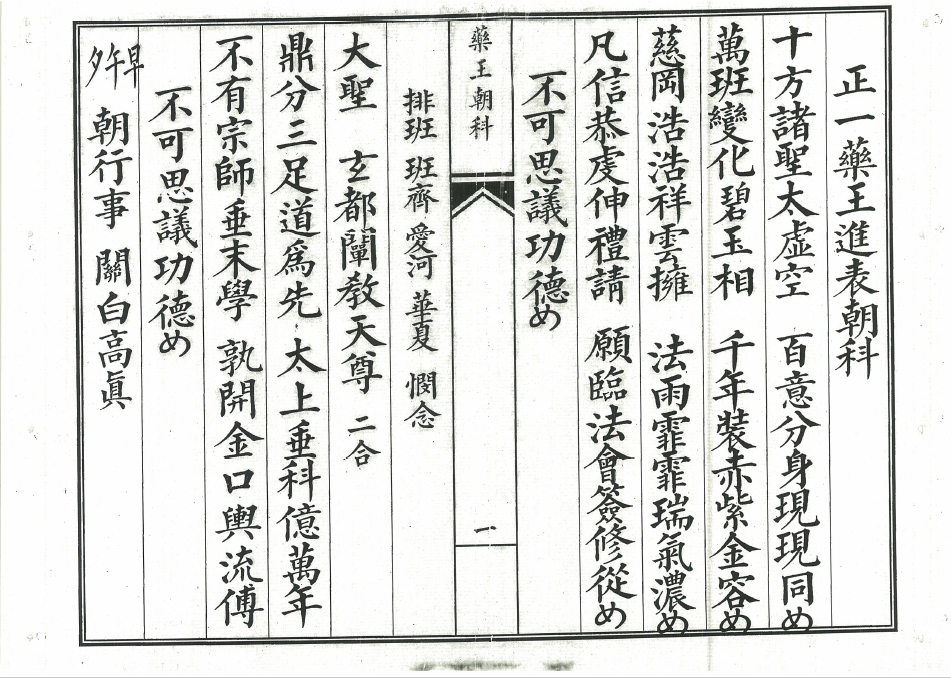 正一藥王進表朝科
十方諸聖太虛空　百意分身現現同め
萬班變化碧玉相　千年裝赤紫金容め
慈岡浩浩祥雲擁　法雨霏霏瑞氣濃め
凡信恭虔伸禮請　願臨法會簽修從め
不可思議功德め
藥王朝科　一
排班　班齊　愛河　華夏　憫念
大聖　玄都闡教天尊　二合
鼎分三足道爲先　太上垂科億萬年
不有宗師垂末學　孰開金口輿流傅
不可思議功德め
早午夕　朝行事　關白高眞